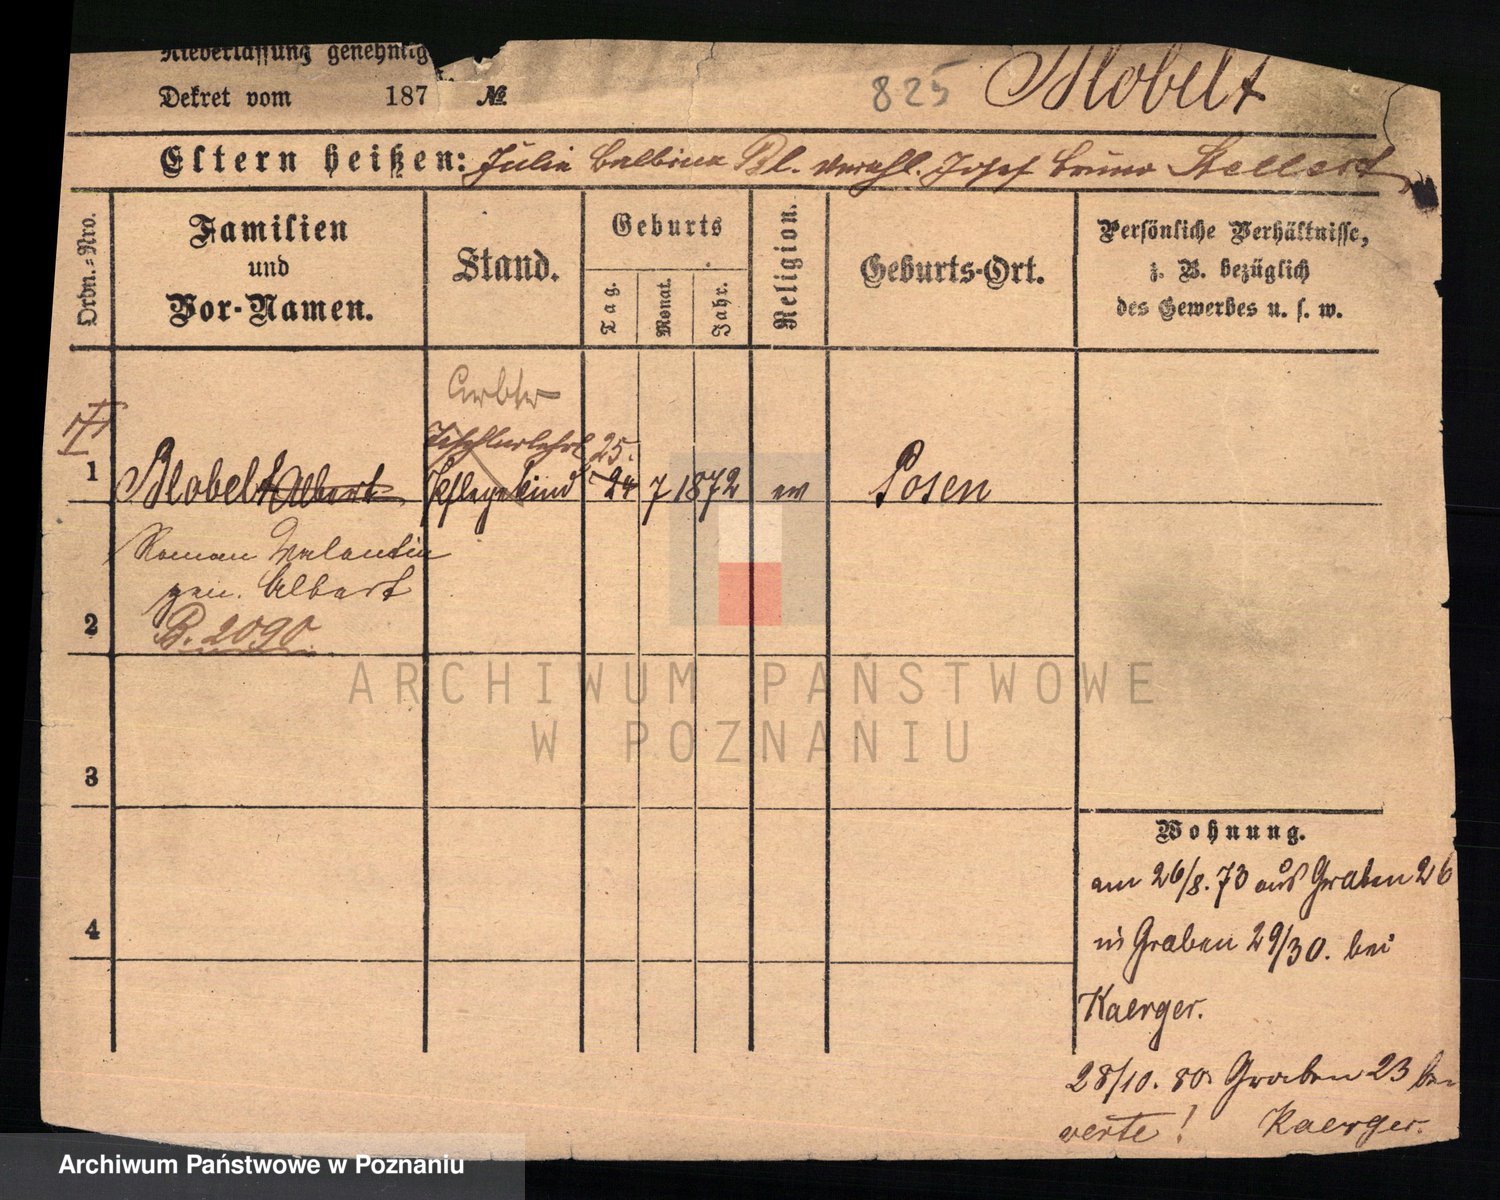 Niederlassung genehmig
Dekret vom 187 № 825 Blobelt
Eltern heißen: Julia Balbina Bl. verehl. Josef Bruno Stellert
Ordn.-Nro.
Familien
und
Vor-Namen.
Stand.
Geburts
Tag.
Monat.
Jahr.
Religion.
Geburts-Ort.
Persönliche Verhältnisse,
z. B. bezüglich
des Gewerbes u. s. w.
Arbtr
Tischlerlehrl 25.
1 Blobelt Albert Pflegekind 24 7 1872 ev Posen
Roman Valentin
gen. Albert
2 B. 2090
3
4
Wohnung.
am 26/8. 73 aus Graben 26
in Graben 29/30. bei
Kaerger.
28/10. 80. Graben 23 bei
verte! Kaerger.
ARCHIWUM PAŃSTWOWE
W POZNANIU
Archiwum Państwowe w Poznaniu